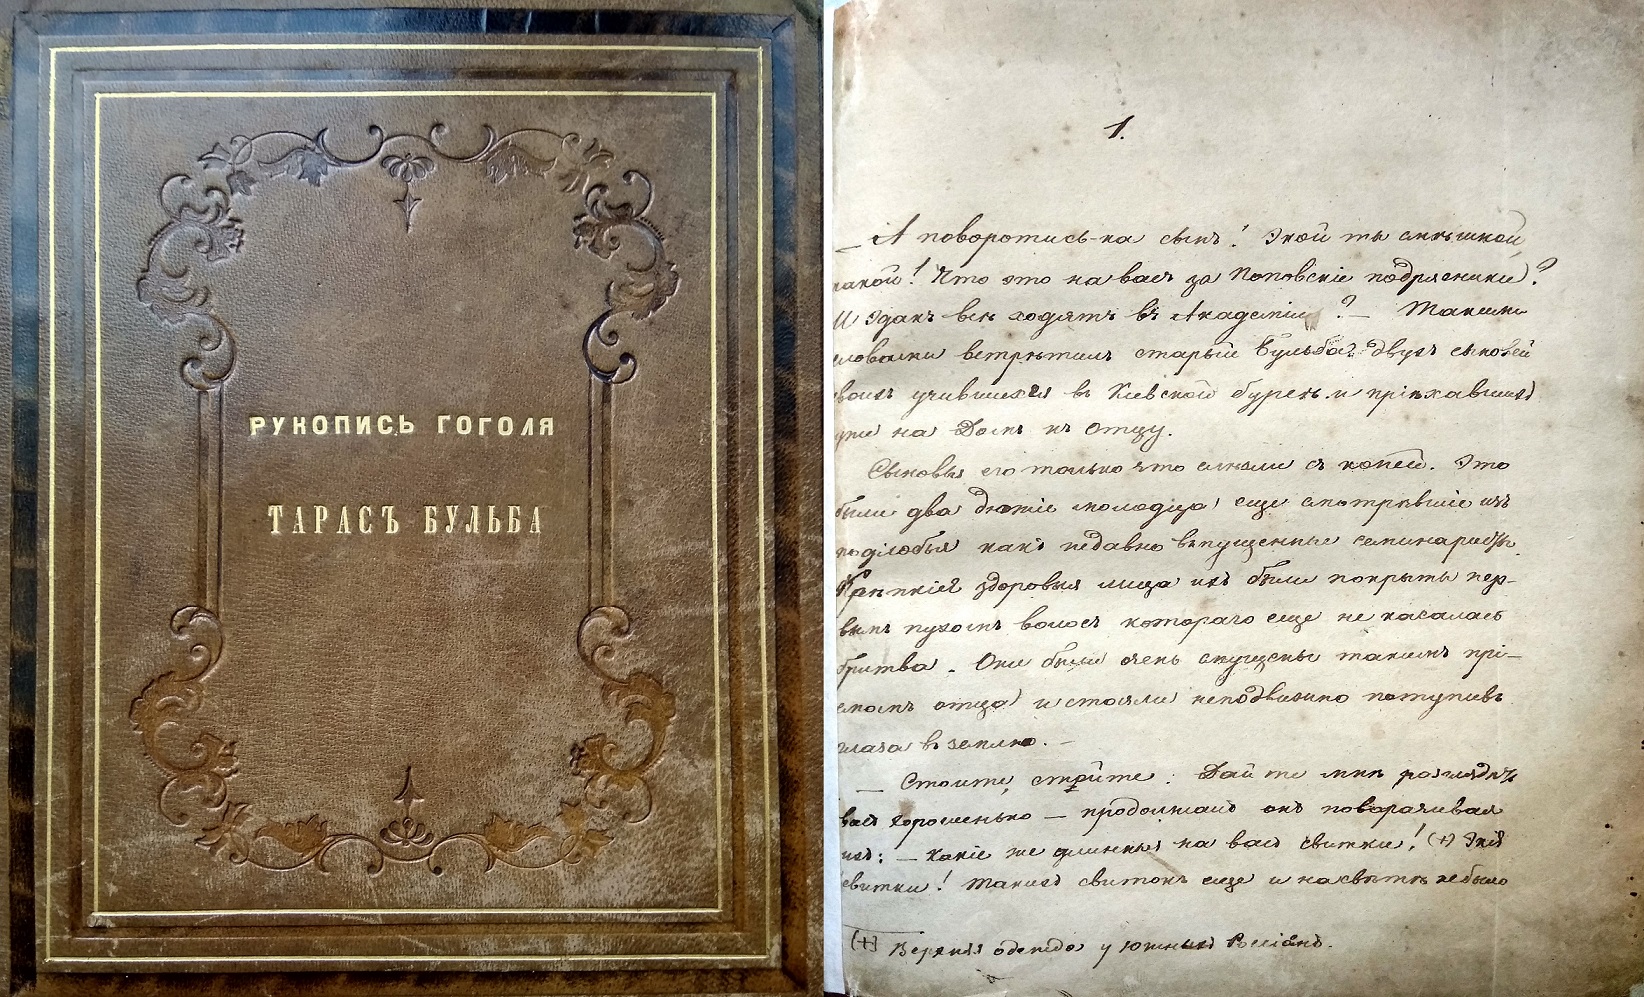 РУКОПИСЬ ГОГОЛЯ
ТАРАСЪ БУЛЬБА
1.
— А поворотись-ка сынъ! Экой ты смѣшной
какой! Что это на васъ за Поповскіе подрясники?
И эдакъ всѣ ходятъ въ Академіи? — Такими
словами встрѣтилъ старый Бульба двухъ сыновей
своихъ учившихся въ Кіевской бурсѣ и пріѣхавшихъ
уже на домъ къ отцу.
Сыновья его только что слѣзли съ коней. Это
были два дюжіе молодца еще смотрѣвшіе изъ
подлобья какъ недавно выпущенные семинаристы.
Крѣпкія здоровыя лица ихъ были покрыты пер-
вымъ пухомъ волосъ котораго еще не касалась
бритва. Они были очень смущены такимъ прі-
емомъ отца и стояли неподвижно потупивъ
глаза въ землю. —
— Стойте, стойте. Дайте мнѣ разглядѣть
васъ хорошенько — продолжалъ онъ поворачивая
ихъ: — какіе же длинные на васъ свитки! (+) Экія
свитки! Такихъ свитокъ еще и на свѣтѣ не было
(+) Верхняя одежда у южныхъ Россіянъ.